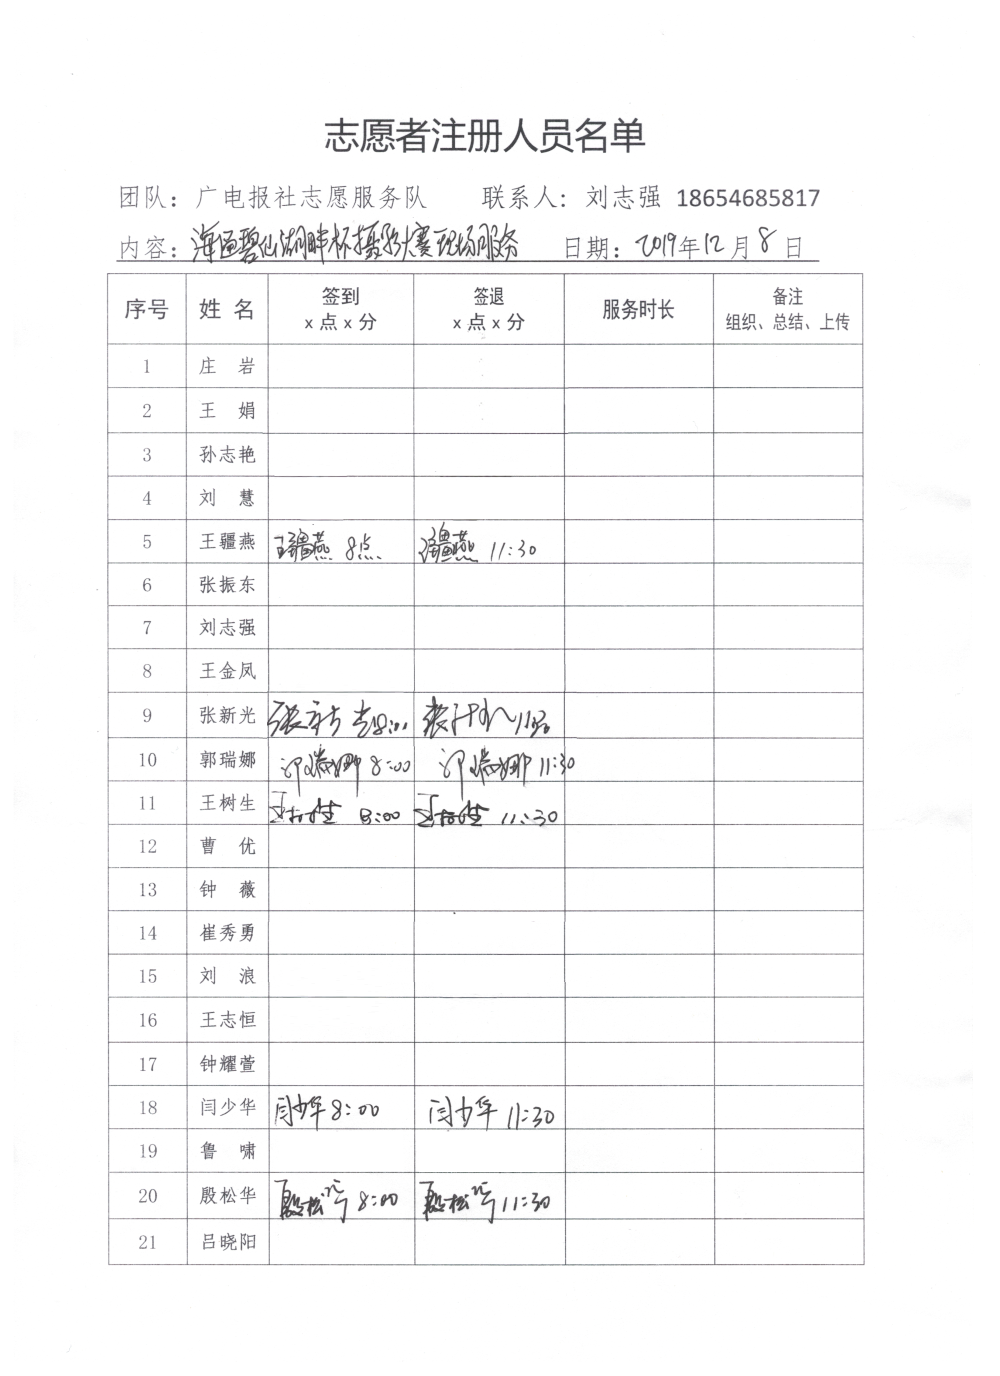 志愿者注册人员名单
团队：广电报社志愿服务队 联系人：刘志强 18654685817
内容：海通碧仙湖畔杯摄影大赛现场服务 日期：2019年12月8日
序号 姓名 签到 x点x分 签退 x点x分 服务时长 备注 组织、总结、上传
1 庄岩
2 王娟
3 孙志艳
4 刘慧
5 王疆燕 王疆燕 8点 王疆燕 11:30
6 张振东
7 刘志强
8 王金凤
9 张新光 张新光 8:00 张新光 11:30
10 郭瑞娜 郭瑞娜 8:00 郭瑞娜 11:30
11 王树生 王树生 8:00 王树生 11:30
12 曹优
13 钟薇
14 崔秀勇
15 刘浪
16 王志恒
17 钟耀萱
18 闫少华 闫少华 8:00 闫少华 11:30
19 鲁啸
20 殷松华 殷松华 8:00 殷松华 11:30
21 吕晓阳